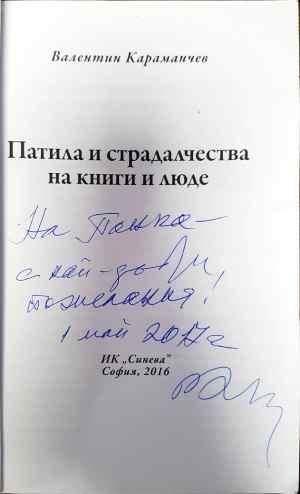 Валентин Караманчев
Патила и страдалчества
на книги и люде
На Панка –
с най-добри
пожелания!
1 май 2017 г
ИК „Синева"
София, 2016